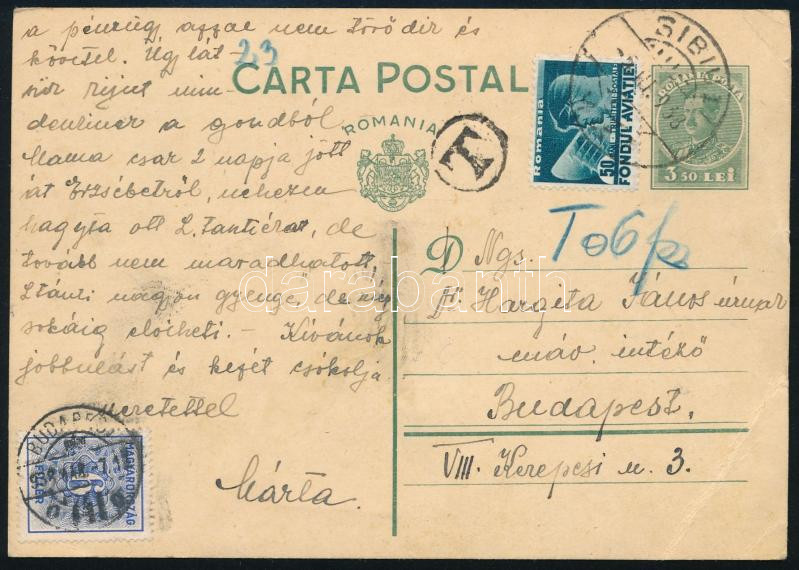 a pénzügy azzal nem törődik és
követel. Úgy lát-
23
szik
a gondból
Mama csak 2 napja jött
át Erzsébetről, nehezen
hagyta ott L. tantiékat, de
tovább nem maradhatott.
L tánti nagyon gyenge, de még
sokáig elélheti. – Kívánok
jobbulást és kezét csókolja
szeretettel
Márta.
CARTA POSTAL
ROMANIA
T
Romania
50
FONDUL AVIATIEI
SIBIU
ROMANIA POSTA
3 50 LEI
T 06 f
D Ngs.
Dr. Hargita János úrnak
máv. intéző
Budapest.
VIII. Kerepesi u. 3.
BUDAPEST
MAGYARORSZÁG
FILLÉR
darabanth